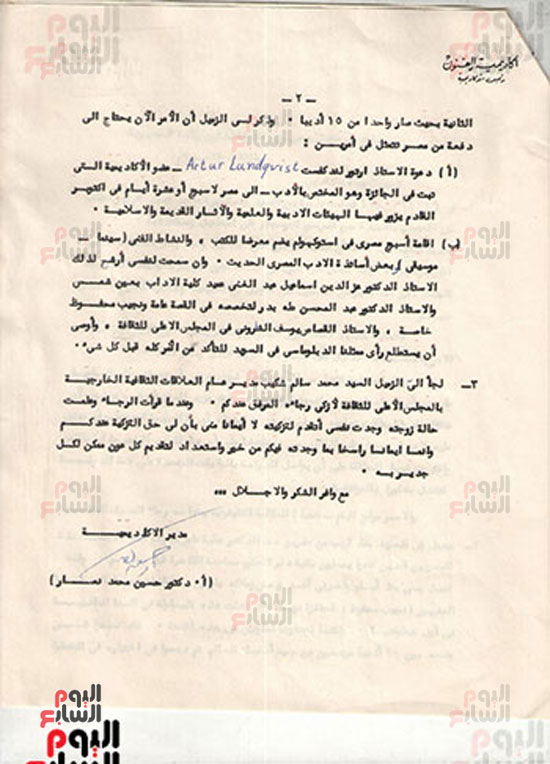 أكاديمية الفنون
- ٢ -
الثانية بحيث صار واحدا من ١٥ أديبا ٠ وذكر لى الزميل أن الأمر الآن يحتاج الى
دفعة من مصر تتمثل فى أمرين :
( أ ) دعوة الاستاذ ارتور لندكفست Artur Lundqvist ــ عضو الأكاديمية التى
تبت فى الجائزة وهو المختص بالأدب ــ الى مصر لأسبوع أو عشرة أيام فى اكتوبر
القادم يزور فيها الهيئات الادبية والعلمية والآثار القديمة والاسلامية ٠
(ب) اقامة أسبوع مصرى فى استوكهولم يضم معرضا للكتب ، والنشاط الفنى ( سينما ــ
موسيقى ) وبعض أساتذة الادب المصرى الحديث ٠ وان سمحت لنفسى أرشح لذلك
الاستاذ الدكتور عز الدين اسماعيل عبد الغنى عميد كلية الاداب بعين شمس
والاستاذ الدكتور عبد المحسن طه بدر لتخصصه فى القصة عامة ونجيب محفوظ
خاصة ، والاستاذ القصاص يوسف الشارونى فى المجلس الاعلى للثقافة ، وأوصى
أن يستطلع رأى ممثلنا الدبلوماسى فى السويد للتأكد من الأمر كله قبل كل شىء ٠
٣ــ لجأ الىّ الزميل السيد محمد سالم شكيب مدير عام العلاقات الثقافية الخارجية
بالمجلس الاعلى للثقافة لأزكى رجاءه المرفق عندكم ٠ وعندما قرأت الرجاء وعلمت
حالة زوجته وجدت نفسى أتقدم لتزكيته لا أيمانا منى بأن لى حق التزكية عندكم
وانما ايمانا راسخا بما وجدته فيكم من خير واستعداد لتقديم كل عون ممكن لكل
جدير به ٠
مع وافر الشكر والاجلال ٠٠٠
مدير الاكاديمية
( أ٠ دكتور حسين محمد نصار )
اليوم السابع